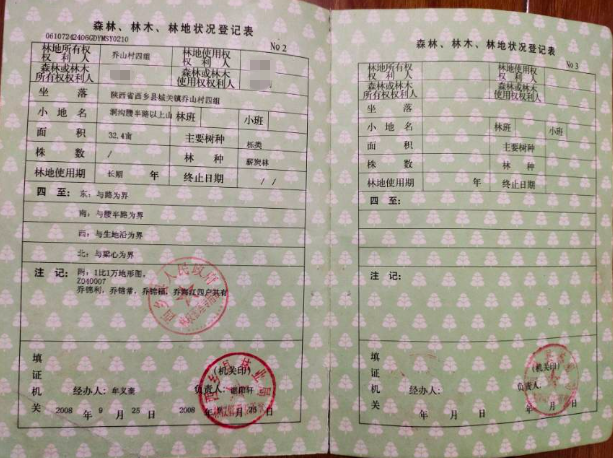 森林、林木、林地状况登记表
No 2
林地所有权
权利人
乔山村四组
林地使用权
权利人
森林或林木
所有权权利人
森林或林木
使用权权利人
坐落
陕西省西乡县城关镇乔山村四组
小地名
林班
小班
面积
32.4亩
主要树种
栎类
株数
/
林种
薪炭林
林地使用期
长期
年
终止日期
/ /
四至:
东:与路为界
南:与腰半路为界
西:与生地沿为界
北:与梁心为界
注记:
附:1比1万地形图。
填证机关
(机关印)
经办人:
负责人:
2008 年 9 月 25 日
2008 年 9 月 25 日
森林、林木、林地状况登记表
No 3
林地所有权
权利人
林地使用权
权利人
森林或林木
所有权权利人
森林或林木
使用权权利人
坐落
小地名
林班
小班
面积
主要树种
株数
林种
林地使用期
年
终止日期
四至:
注记:
填证机关
(机关印)
经办人:
负责人:
年 月 日
年 月 日